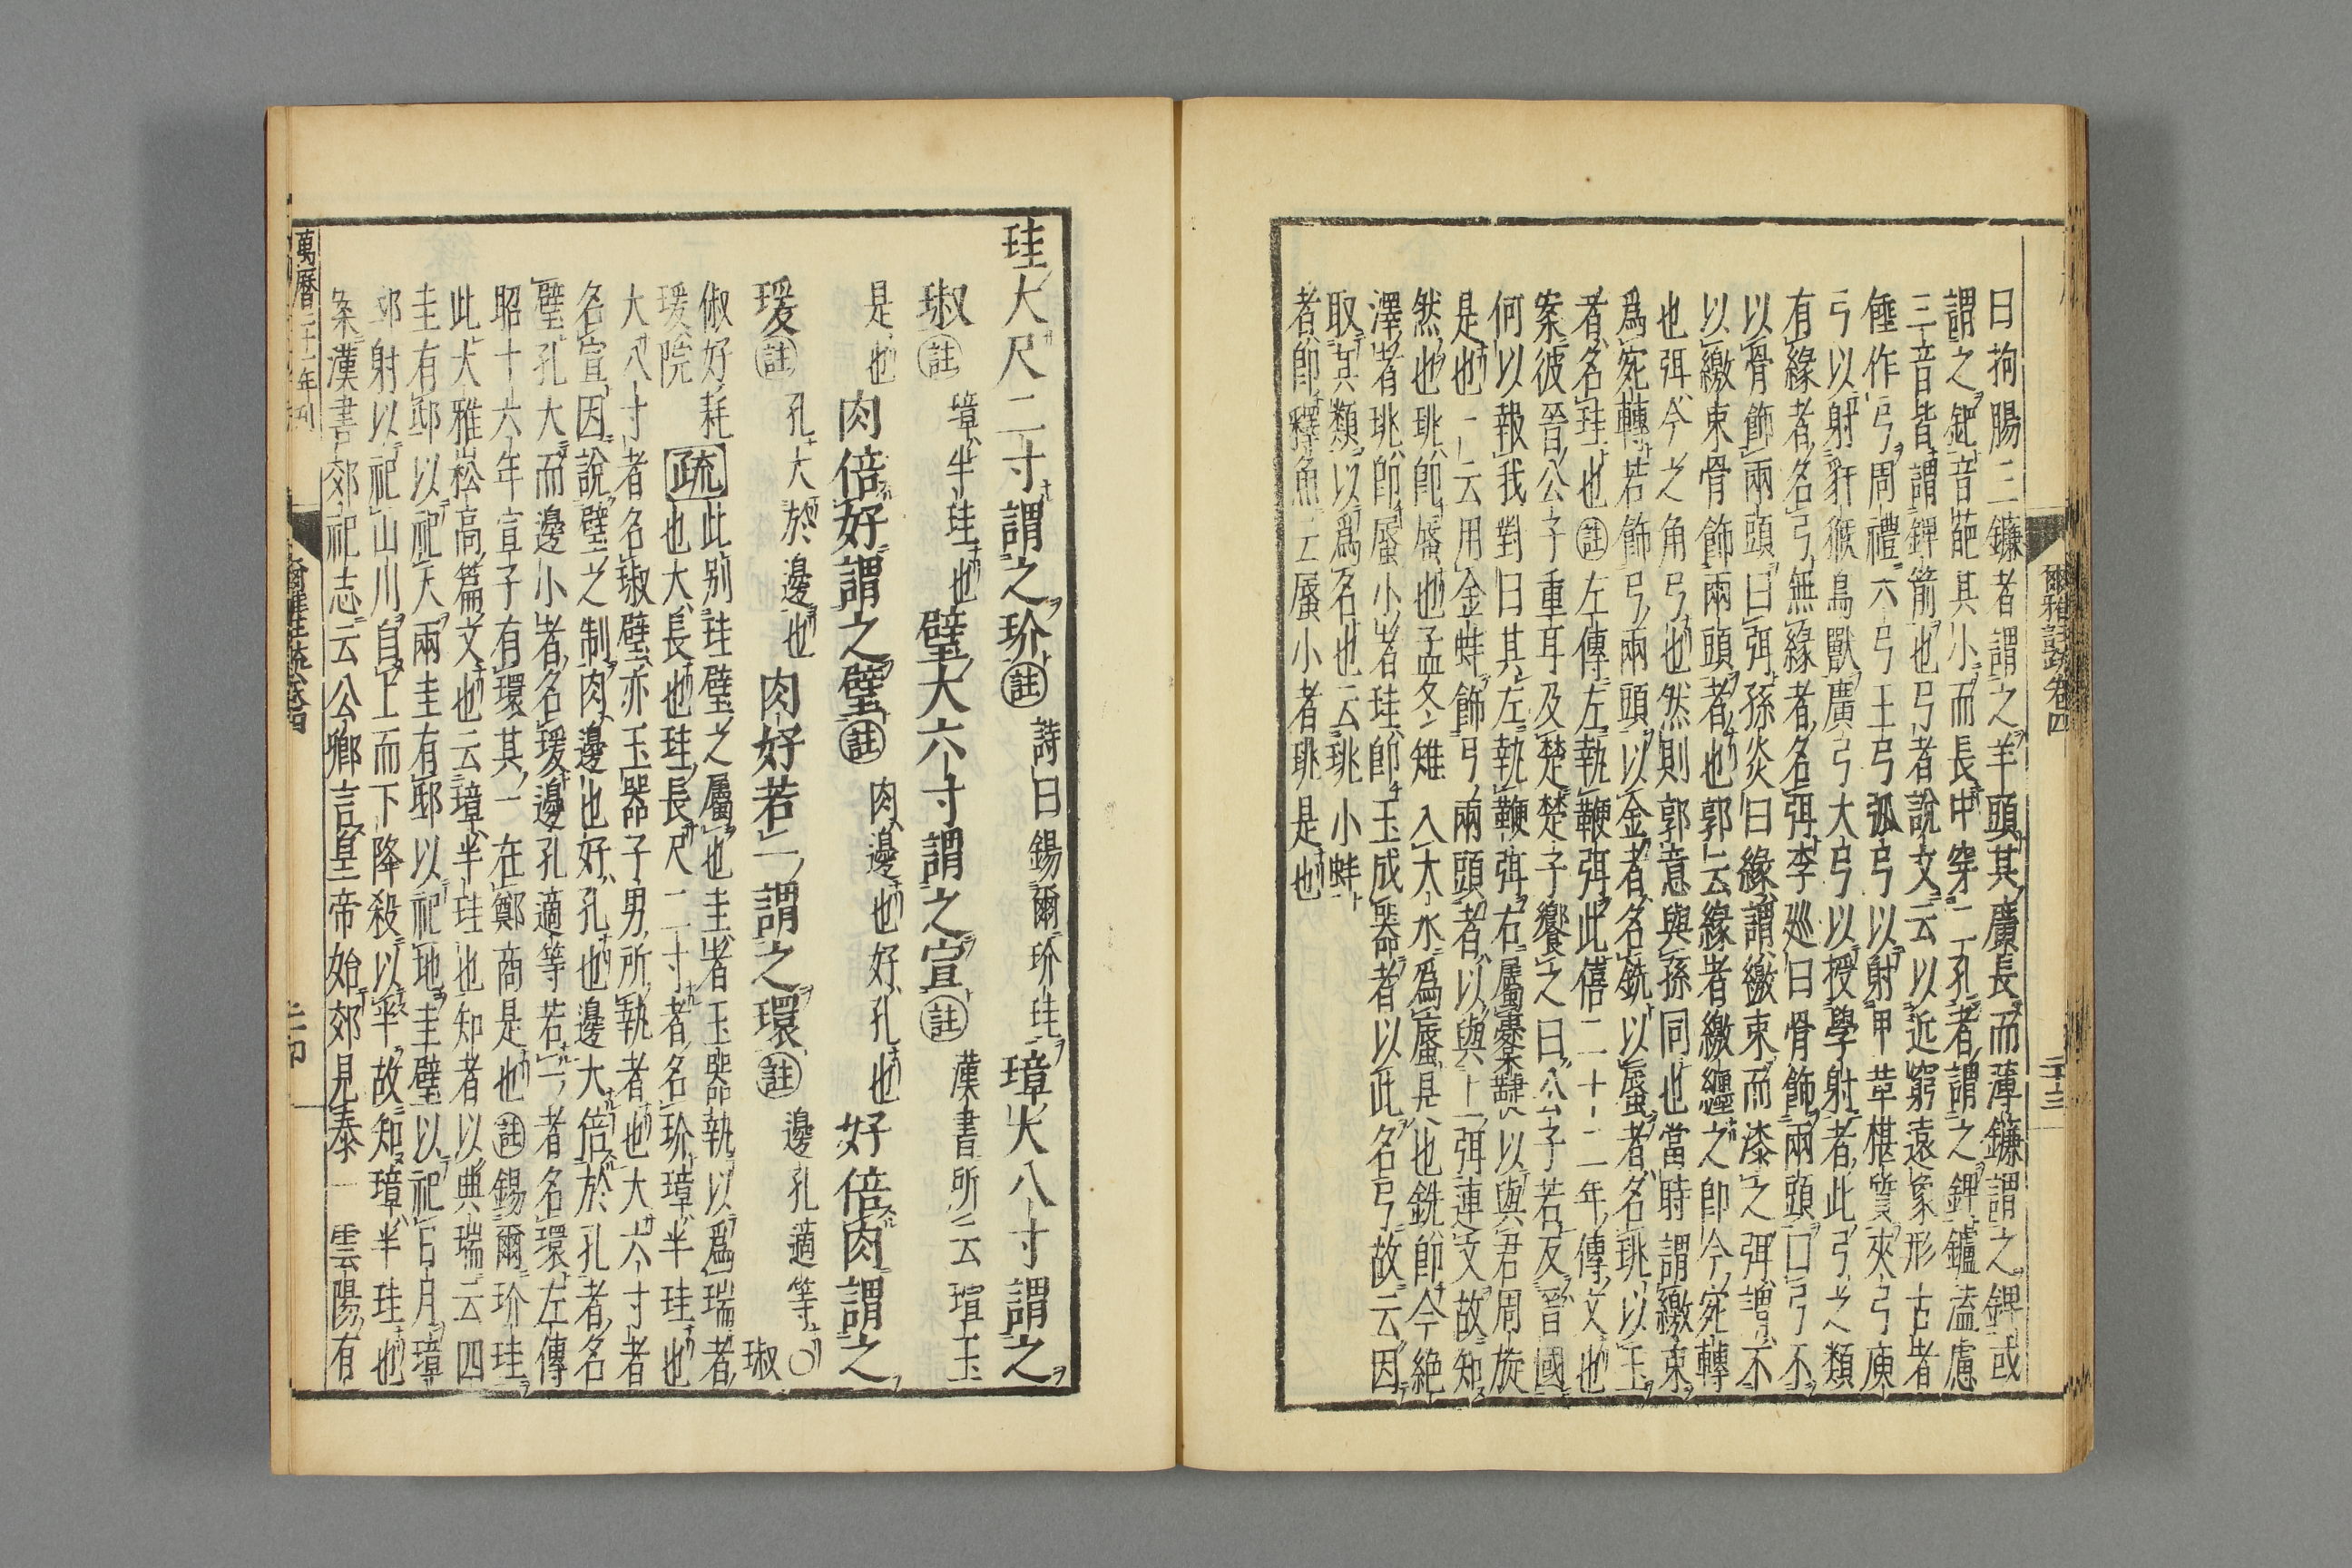 曰拘腸三鐮者謂之羊頭其廣長而薄鐮謂之錍或
謂之鈀音葩其小而長中穿二孔者謂之錍鑪嗑慮
三音皆謂錍箭也弓者說文云以近窮遠象形古者
倕作弓周禮六弓王弓弧弓以射甲革椹質夾弓庾
弓以射豻侯鳥獸唐弓大弓以授學射者此弓之類
有緣者名弓無緣者名弭李巡曰骨飾兩頭曰弓不
以骨飾兩頭曰弭孫炎曰緣謂繳束而漆之弭謂不
以繳束骨飾兩頭者也郭云緣者繳纏之即今宛轉
也弭今之角弓也然則郭意與孫同也當時謂繳束
爲宛轉若飾弓兩頭以金者名銑以蜃者名珧以玉
者名珪也註左傳左執鞭弭此僖二十二年傳文也
案彼晉公子重耳及楚楚子饗之曰公子若反晉國
何以報我對曰其左執鞭弭右屬櫜鞬以與君周旋
是也云用金蚌飾弓兩頭者以與上弭連文故知
然也珧即蜃也孟冬雉入大水爲蜃是也銑即今絕
澤者珧即蜃小者珪即玉成器者以此名弓故云因
取其類以爲名也云珧小蚌
者即釋魚云蜃小者珧是也
爾雅註疏卷四
二十三
珪大尺二寸謂之玠註詩曰錫爾玠珪璋大八寸謂之
琡註璋半珪也璧大六寸謂之宣註漢書所云瑄玉
是也肉倍好謂之璧註肉邊也好孔也好倍肉謂之
瑗註孔大於邊也肉好若一謂之環註邊孔適等○琡
俶好耗
瑗院疏此別珪璧之屬也圭者玉器執以爲瑞者
也大長也珪長尺二寸者名玠璋半珪也
大八寸者名琡璧亦玉器子男所執者也大六寸者
名宣因說璧之制肉邊也好孔也邊大倍於孔者名
璧孔大而邊小者名瑗邊孔適等若一者名環左傳
昭十六年宣子有環其一在鄭商是也註錫爾玠珪
此大雅崧高篇文也云璋半珪也知者以典瑞云四
圭有邸以祀天兩圭有邸以祀地圭璧以祀日月璋
邸射以祀山川自上而下降殺以半故知璋半珪也
案漢書郊祀志云公卿言皇帝始郊見泰一雲陽有
萬曆二十一年刊
爾雅註疏卷四